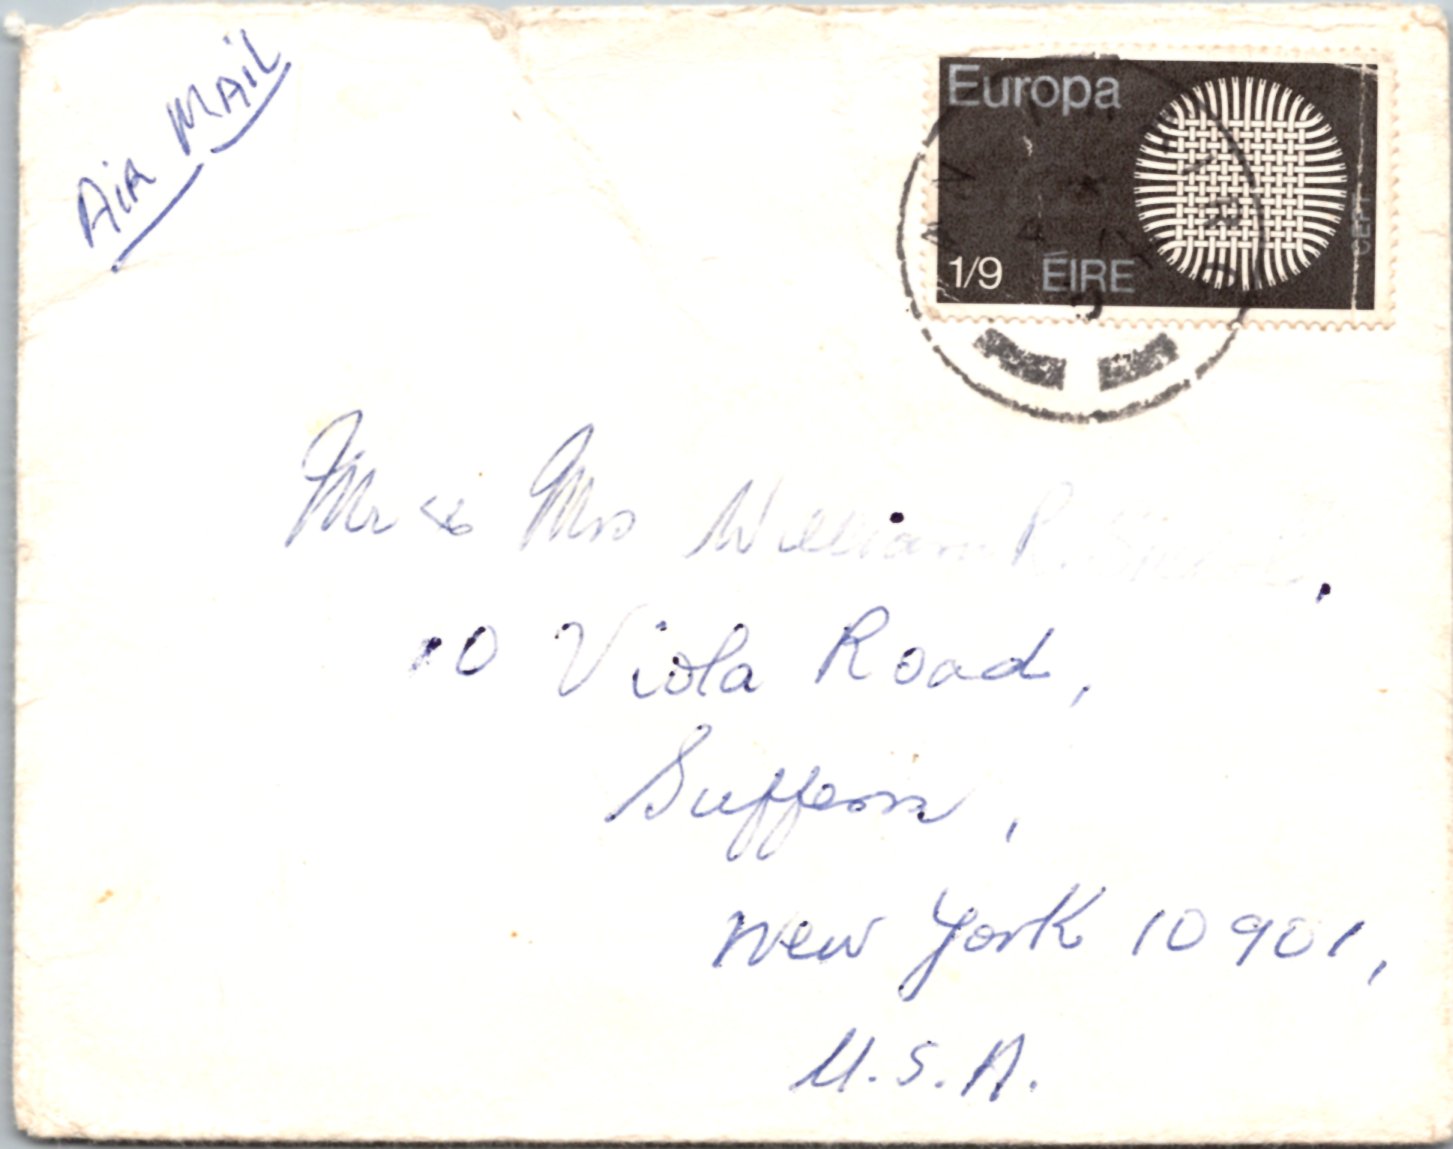 Air Mail
Europa
CEPT
1/9 ÉIRE
Mr & Mrs William R.
10 Viola Road,
Suffern,
New York 10901,
U.S.A.